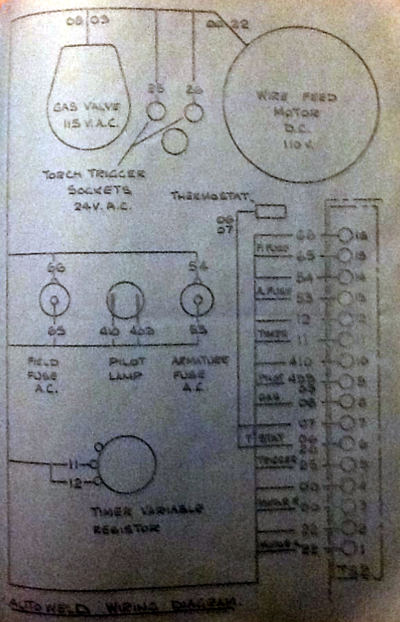 08 09
GAS VALVE
115 V. A.C.
25 26
TORCH TRIGGER
SOCKETS
24V. A.C.
22
WIRE FEED
MOTOR
D.C.
110 V.
THERMOSTAT.
06
07
66
65
54
53
12
11
410
08
07
06
26
25
22
22
66
65
FIELD
FUSE
A.C.
410 409
PILOT
LAMP
54
53
ARMATURE
FUSE
A.C.
11
12
TIMER VARIABLE
RESISTOR
F. FUSE
A. FUSE
TIMER
PILOT 409
GAS
T STAT
TRIGGER
16
15
14
13
12
11
10
9
8
7
6
5
4
3
2
1
AUTOWELD WIRING DIAGRAM.